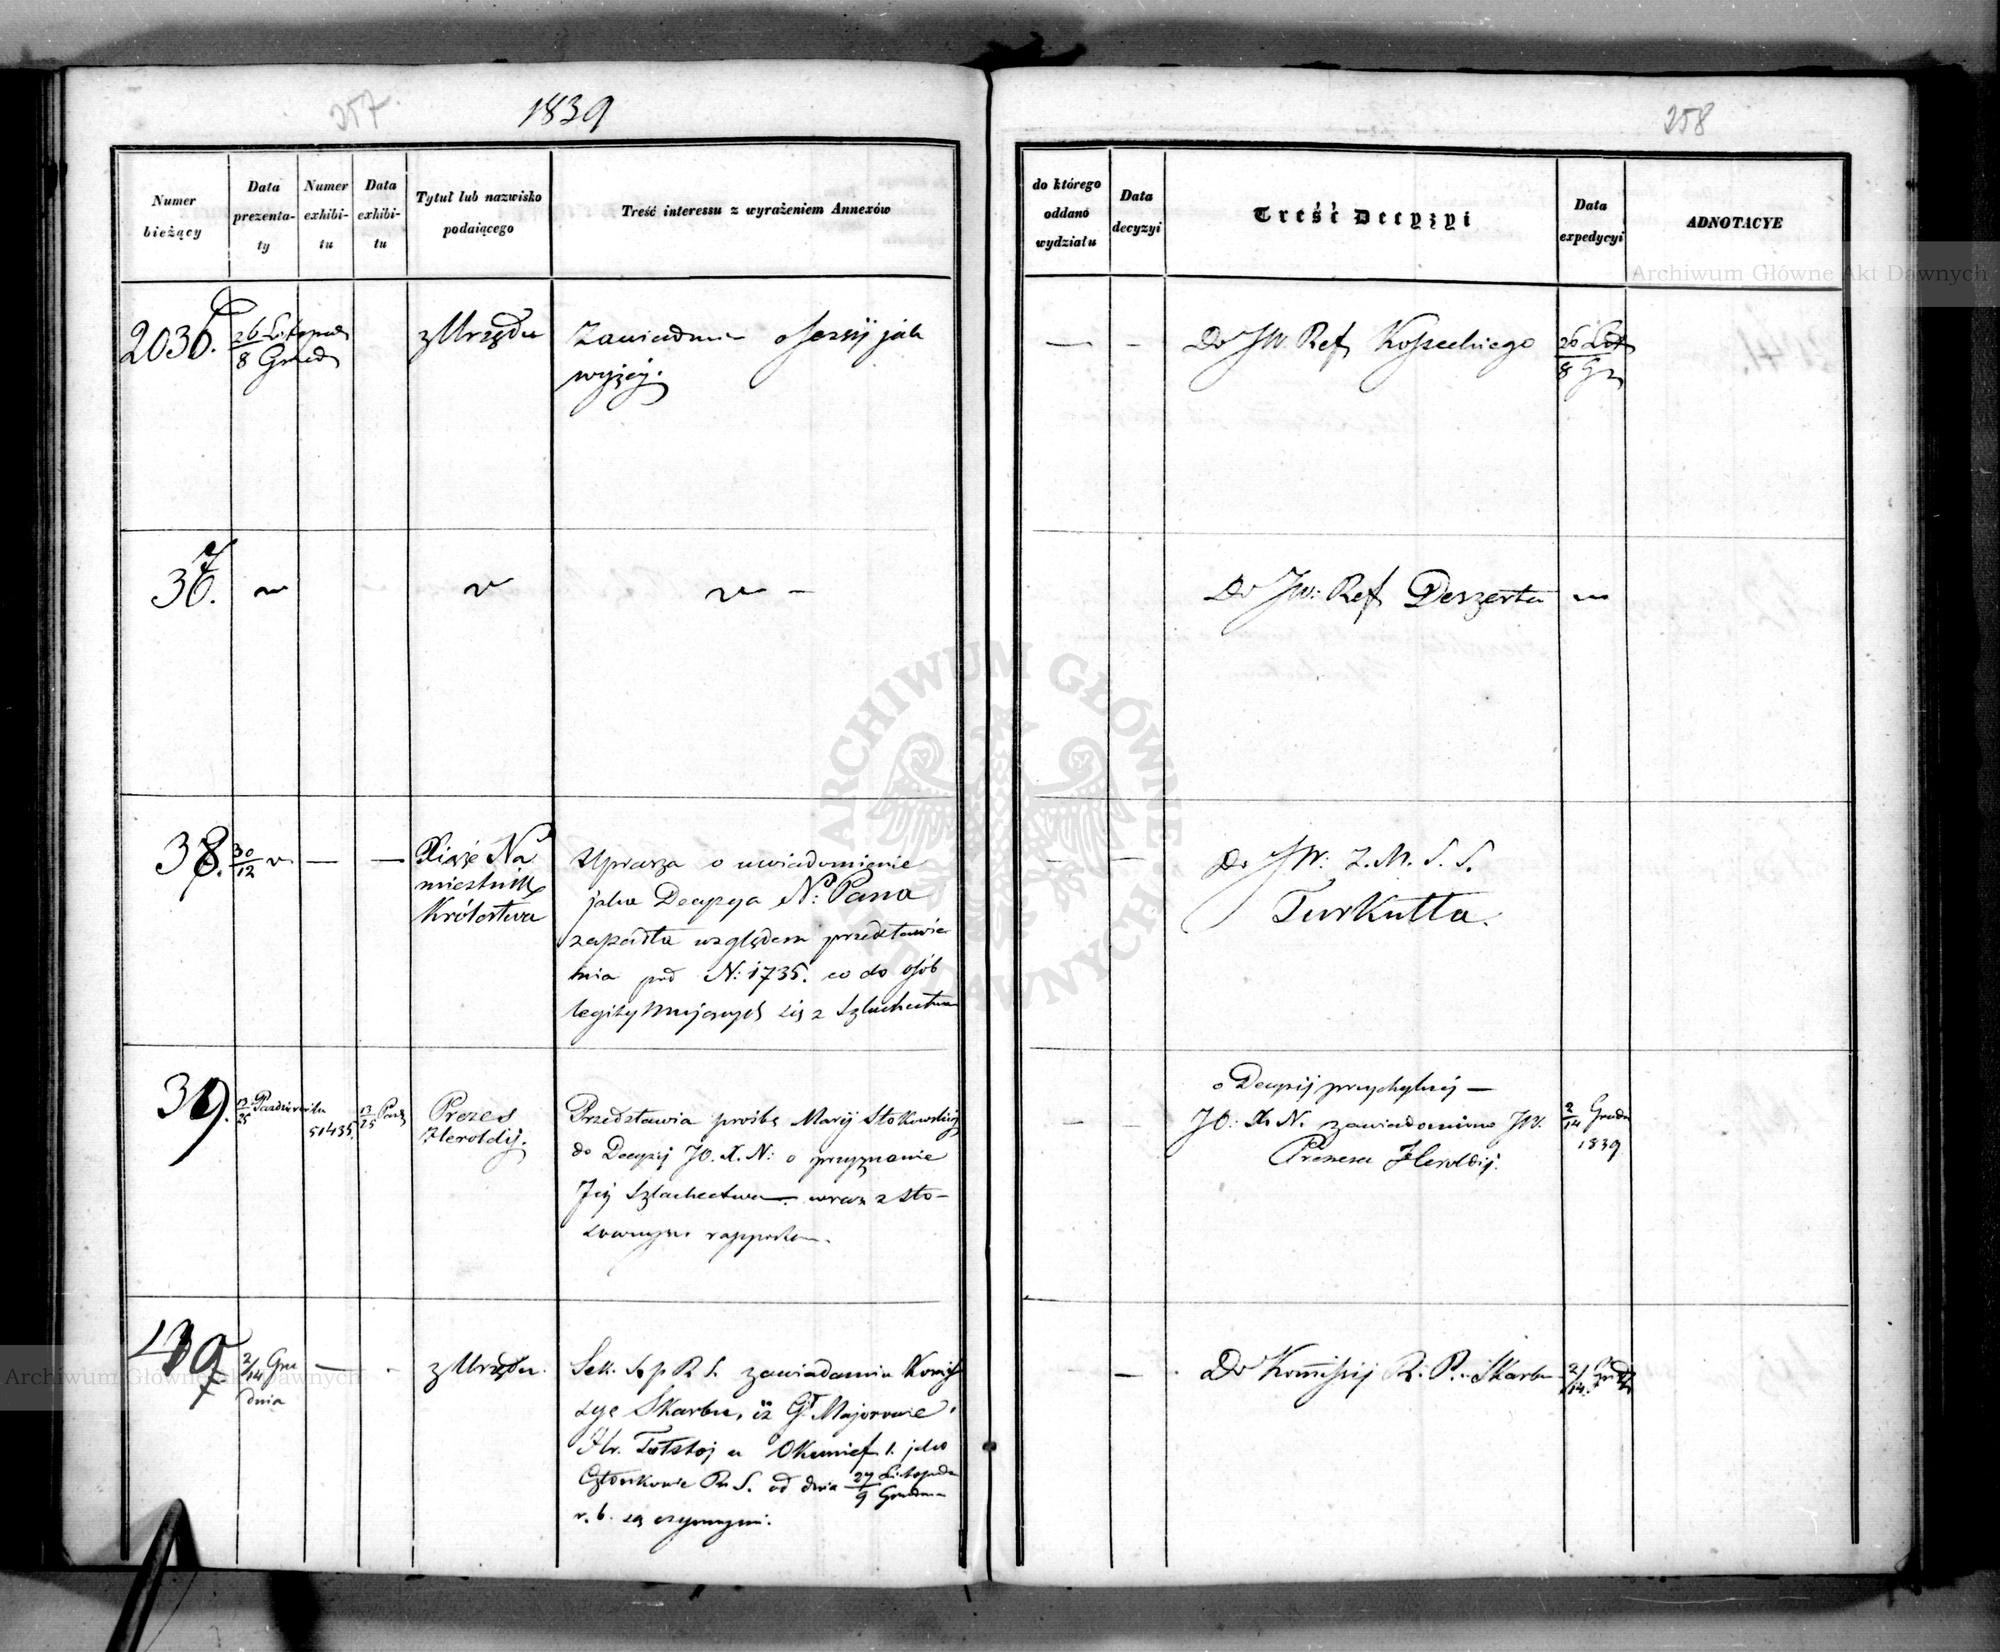 257.
1839
Numer bieżący
Data prezenta-ty
Numer exhibi-tu
Data exhibi-tu
Tytuł lub nazwisko podaiącego
Treść interessu z wyrażeniem Annexów
2036.
26 Listopad
8 Grud
z Urzędu
Zawiadomie o Sessyj jak
wyżej.
37.
38.
30/12
Xiąże Na
miestnik
Królestwa
Uprasza o uwiadomienie
jaka Decyzya N: Pana
zapadła względem przedstawie
nia pod N: 1735. co do osób
legitymujących się z Szlachectwa
39.
13/25 Październiku
51435.
13/25 Paźd
Prezes
Heroldij.
Przedstawia prośbę Maryi Stokowskiej
do Decyzyi JO. X. N: o przyznanie
Jej Szlachectwa wraz z sto-
sownym rapportem.
40
2/14 Gru
dnia
z Urzędu.
Sek. St. p R S. zawiadamia Komis
syę Skarbu, iż Gł Majorowie
Hr. Tołstoj a Okunief 1. jako
Członkowie R. S. od dnia 27 Listopada
9 Grudnia
r. b. są czynnymi.
258
do którego oddano wydziału
Data decyzyi
Treść Decyzyi
Data expedycyi
ADNOTACYE
Do JW. Ref Kosseckiego
26 List
8 Gr
Do JW: Ref Deszerta
Do JW: Z. M. S. S.
Turkułła.
o Decyzij przychylnej —
JO: X. N. zawiadomiono JW.
Prezesa Heroldij.
2/14 Grudn
1839
Do Kommissij R. P. Skarbu
2/14 Grud
Archiwum Główne Akt Dawnych
ARCHIWUM GŁÓWNE AKT DAWNYCH
Archiwum Główne Akt Dawnych